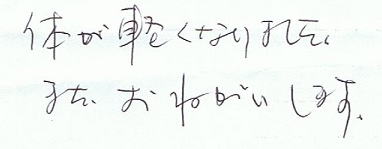 体が軽くなりました。
また、おねがいします。